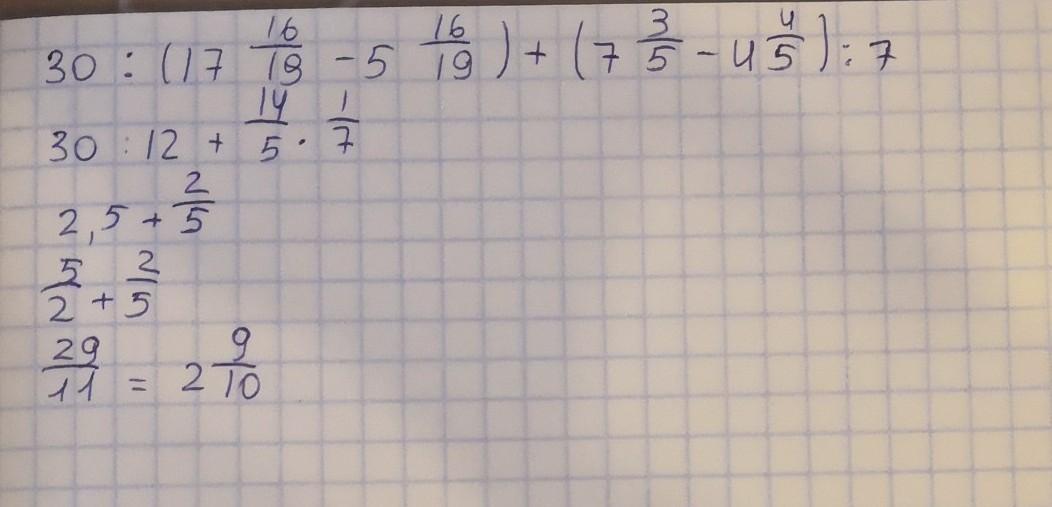 30 : (17 16/19 - 5 16/19) + (7 3/5 - 4 4/5) : 7
30 : 12 + 14/5 · 1/7
2,5 + 2/5
5/2 + 2/5
29/11 = 2 9/10